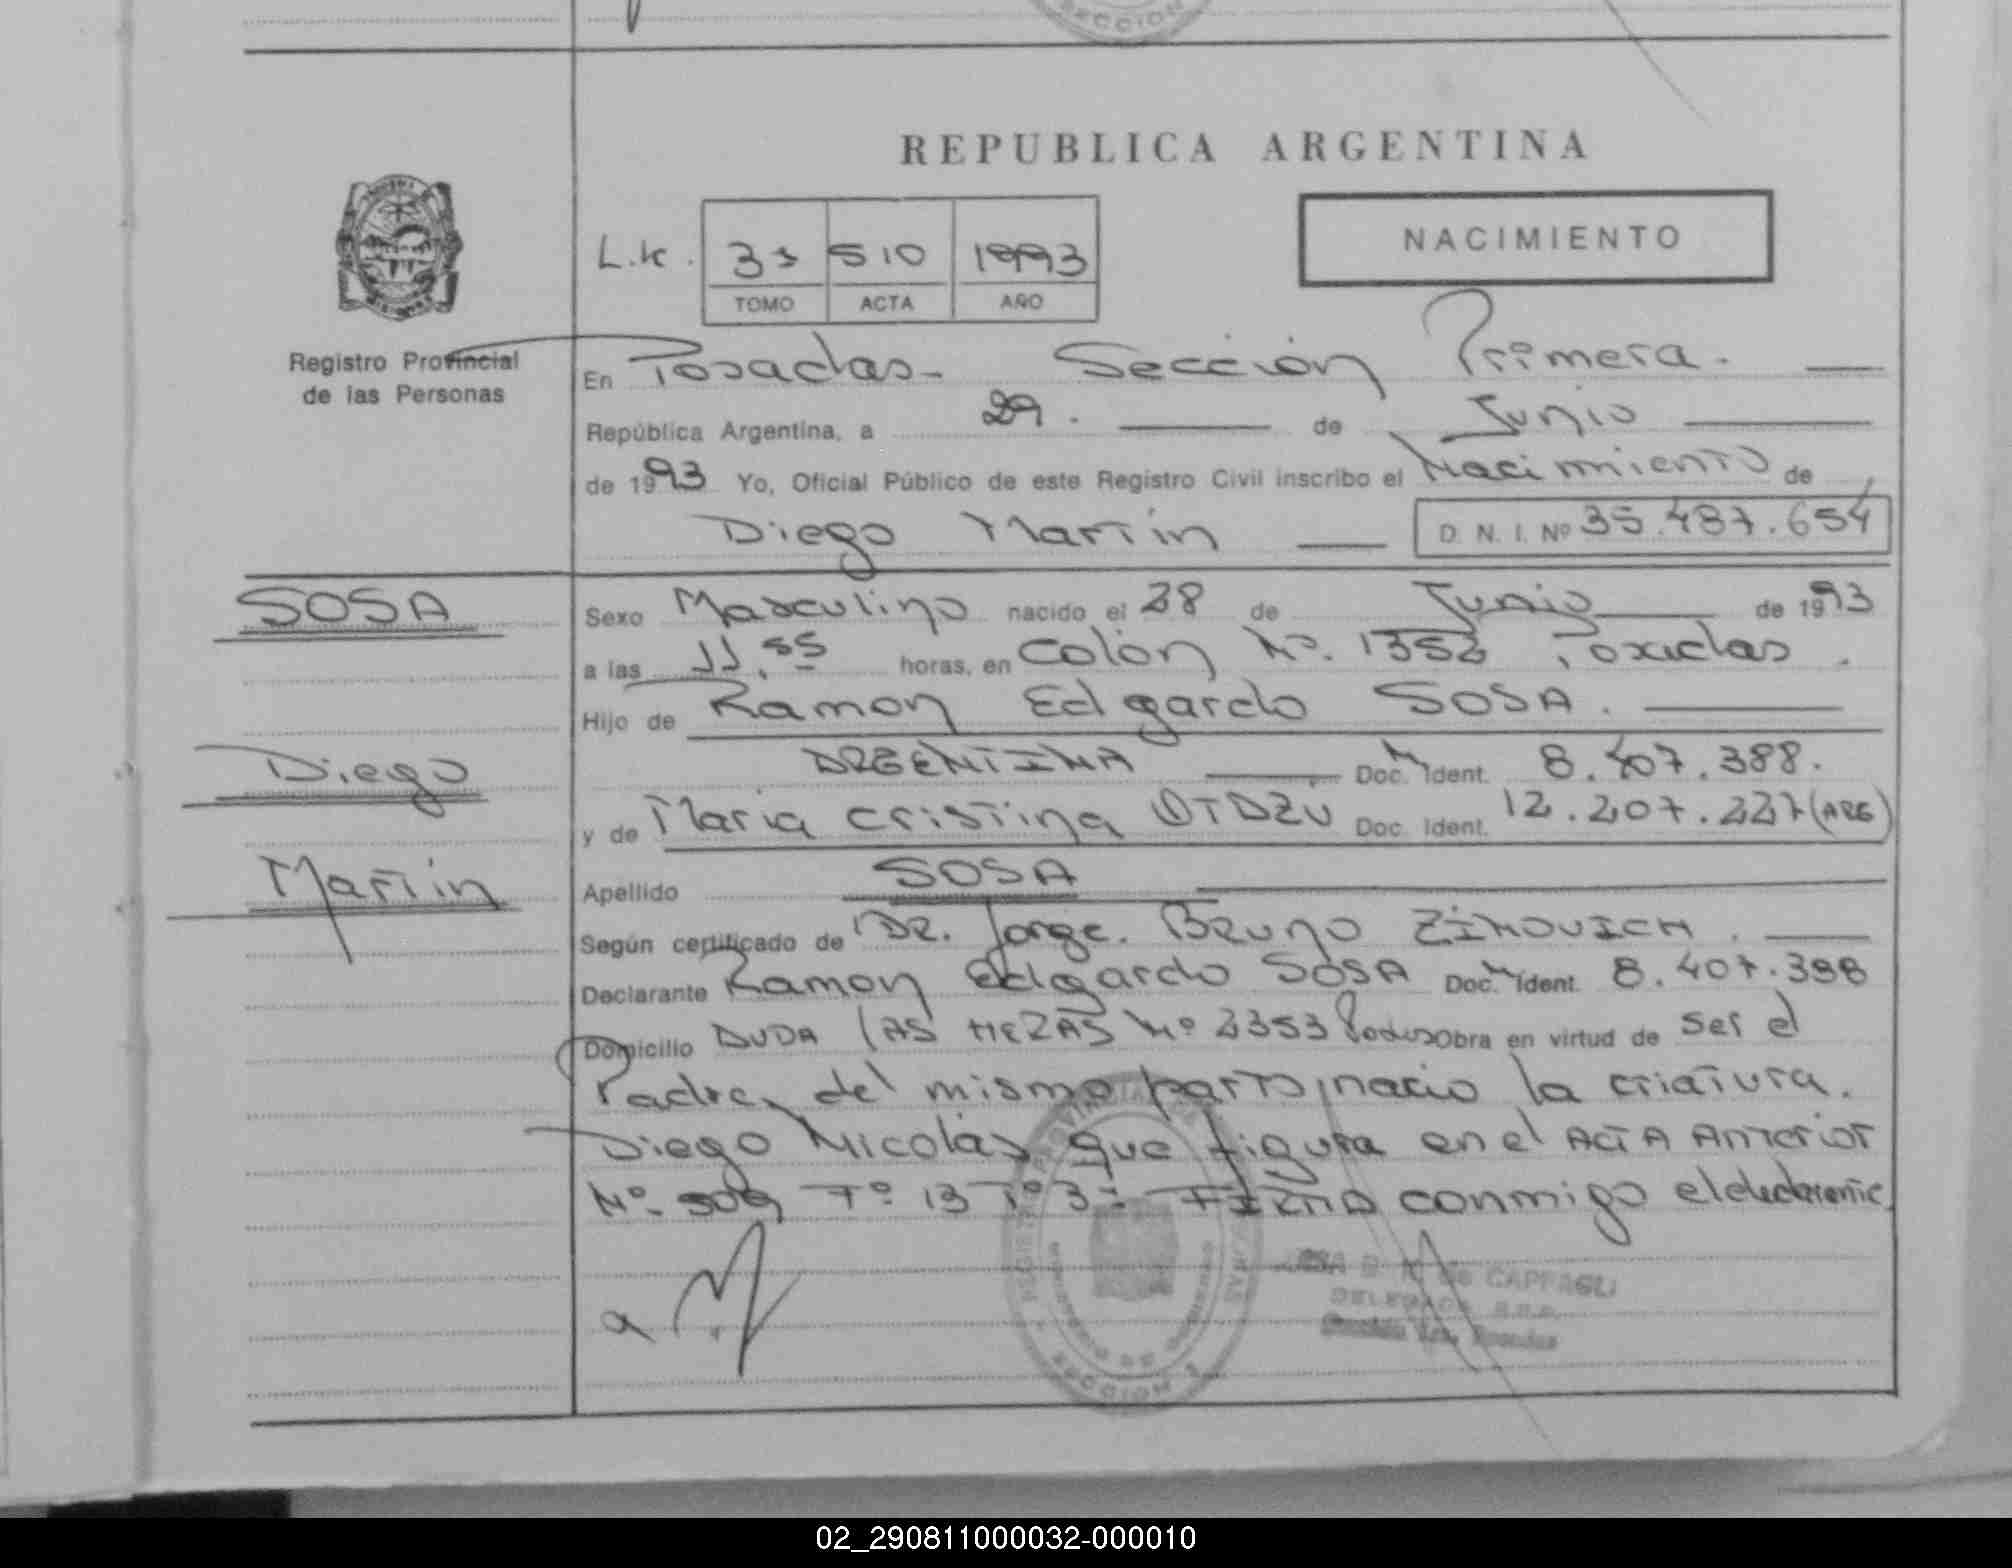 REPUBLICA ARGENTINA
NACIMIENTO
L.K. 510 1993
TOMO ACTA AÑO
Registro Provincial
de las Personas
En Posadas - Sección Primera.
República Argentina, a 29. de Junio
de 1993 Yo, Oficial Público de este Registro Civil inscribo el Nacimiento de
Diego Martín D. N. I. Nº 35.487.654
SOSA
Sexo Masculino nacido el 28 de Junio de 1993
a las 11.55 horas, en Colón Nº. 1352 Posadas.
Hijo de Ramon Edgardo SOSA.
Diego
ARGENTINA Doc. Ident. 8.407.388.
y de Maria Cristina Doc. Ident. 12.207.227 (ARG)
Martín
Apellido SOSA
Según certificado de DR. Jorge. Bruno
Declarante Ramon Edgardo SOSA Doc. Ident. 8.407.388
Domicilio Nº 2353 Obra en virtud de ser el
Padre, del mismo parto nacio la criatura.
Diego Nicolás que figura en el ACTA Anterior
Nº. 509 Tº FIRMA conmigo el declarante
SECCION 1
DELEGADA
02_290811000032-000010